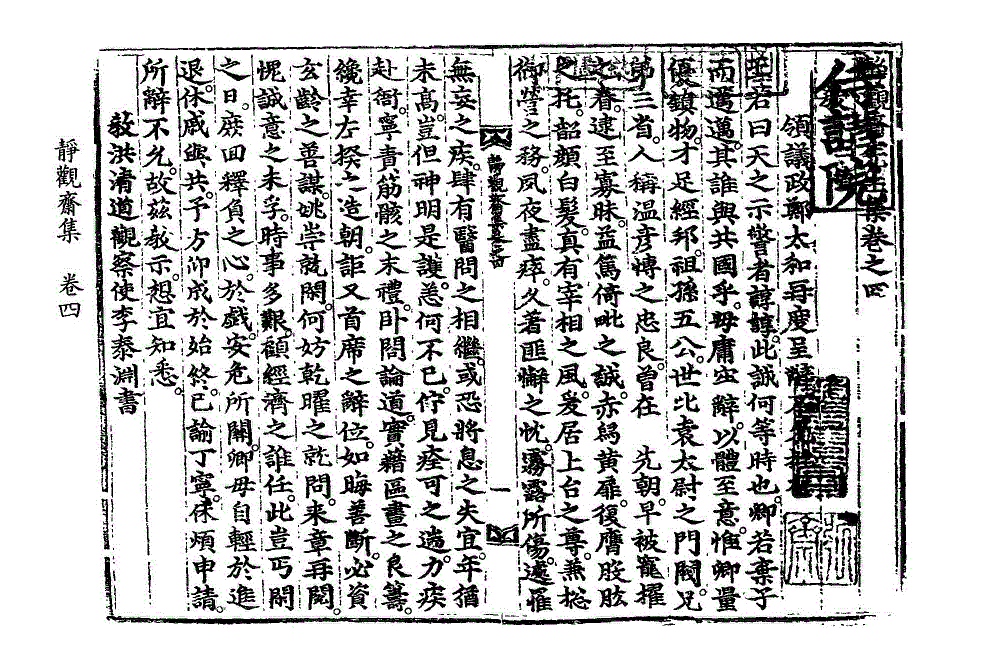 靜觀齋先生集卷之四
領議政鄭太和再度呈辭
王若曰天之示警者諄諄此誠何等時也卿若棄予
而邁邁其誰與共國乎毋庸固辭以體至意惟卿量
優鎭物才足經邦祖孫五公世比袁太尉之門閥兄
弟三省人稱温彦博之忠良曾在 先朝早被寵擢
之眷逮至寡昧益篤倚毗之誠赤舄黄扉復膺股肱
之托韶顔白髮眞有宰相之風爰居上台之尊兼摠
御營之務夙夜盡瘁久著匪懈之忱霧露所傷遽罹
靜觀齋集卷之四
一
無妄之疾肆有醫問之相繼或恐將息之失宜年猶
未高豈但神明是護恙何不已佇見痊可之遄力疾
赴衙寧責筋骸之末禮卧閤論道實藉區畫之良籌
纔幸左揆之造朝詎又首席之辭位如晦善斷必資
玄齡之善謀姚崇就閑何妨乾曜之就問來章再閱
愧誠意之未孚時事多艱顧經濟之誰任此豈丐閑
之日庶回釋負之心於戲安危所關卿毋自輕於進
退休戚與共予方仰成於始終已諭丁寧俫煩申請
所辭不允故玆敎示想宜知悉
敎洪淸道觀察使李泰淵書
靜觀齋集 卷四